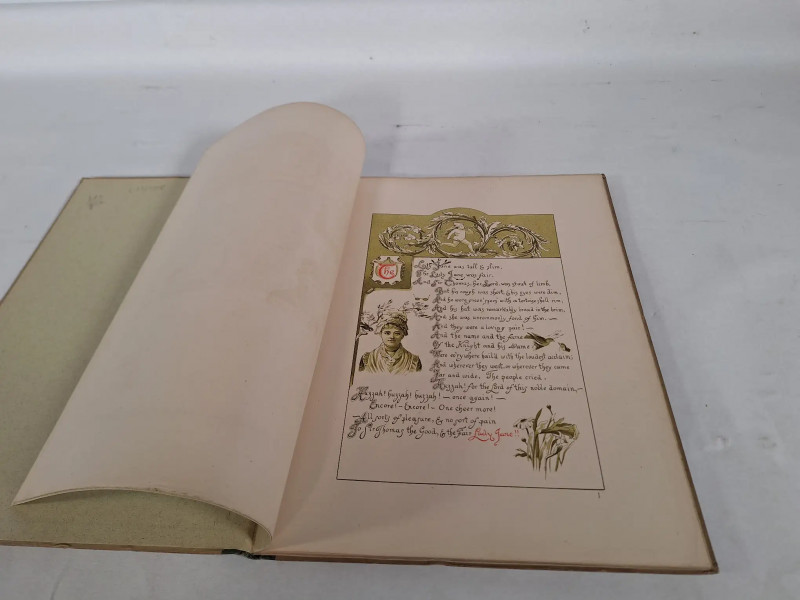 The
Lady Jane was tall & slim,
The Lady Jane was fair,
And Sir Thomas, her Lord, was stout of limb,
But his cough was short, & his eyes were dim,
And he wore green "specs" with a tortoise shell rim,
And his hat was remarkably broad in the brim,
And she was uncommonly fond of him. —
And they were a loving pair! —
And the name and the fame
Of the Knight and his Dame
Were ev'rywhere hail'd with the loudest acclaim;
And wherever they went, or wherever they came
Far and wide, The people cried
Huzzah! for the Lord of this noble domain, —
Huzzah! huzzah! huzzah! — once again! —
Encore! — Encore! — One cheer more!
— All sorts of pleasure, & no sort of pain
To Sir Thomas the Good, & the Fair Lady Jane!!
1